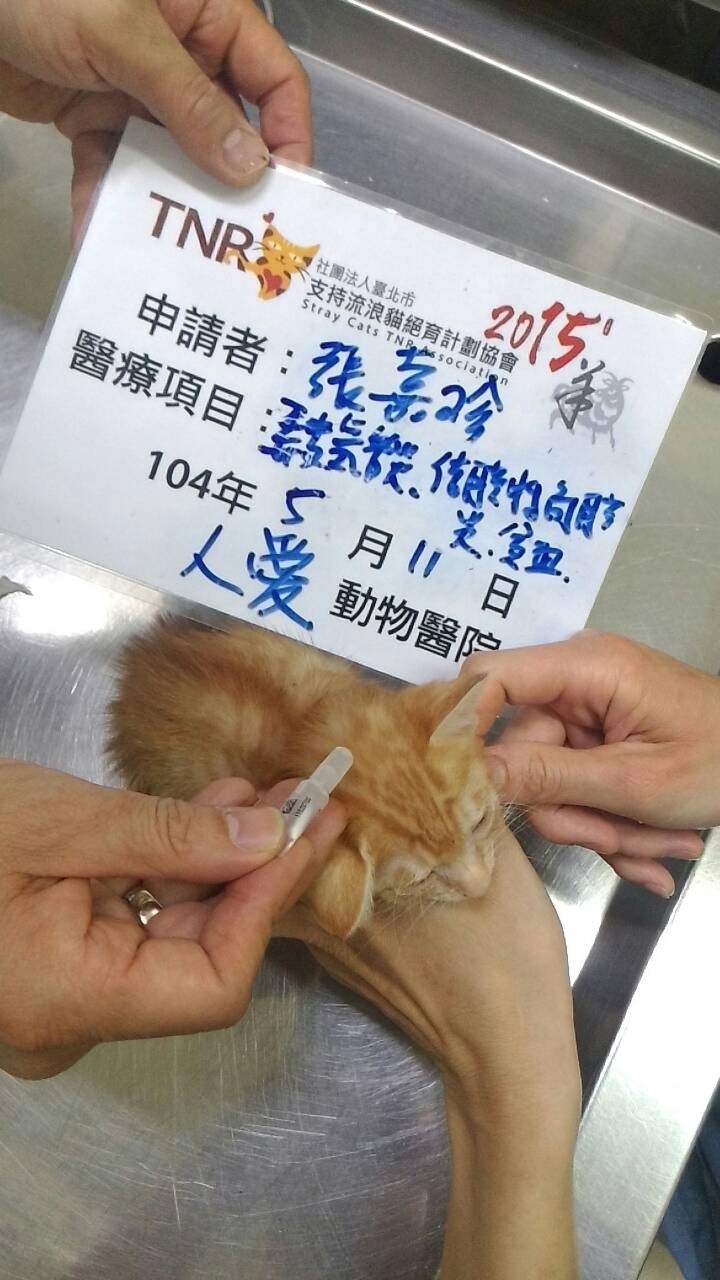 TNR
社團法人臺北市
支持流浪貓絕育計劃協會
Stray Cats TNR Association
2015
羊
申請者：張嘉玲
醫療項目：
炎.貧血.
104年5月11日
人愛動物醫院